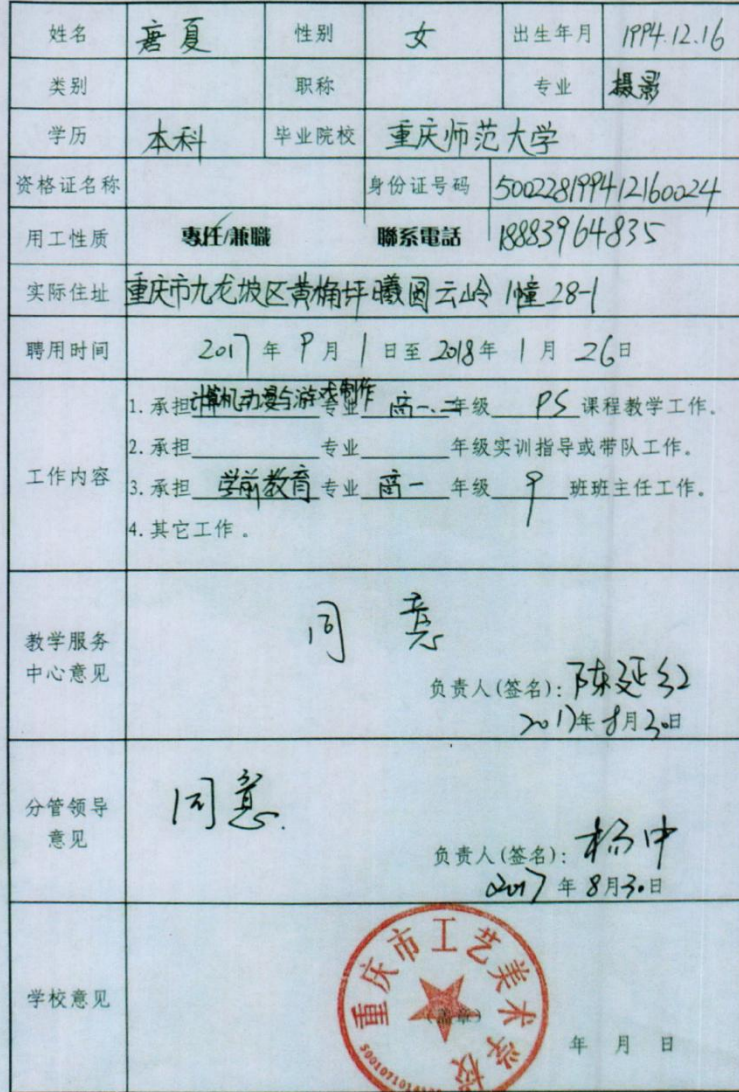 姓名 唐夏 性别 女 出生年月 1994.12.16
类别 职称 专业 摄影
学历 本科 毕业院校 重庆师范大学
资格证名称 身份证号码 500228199412160024
用工性质 專任/兼職 聯系電話 18883964835
实际住址 重庆市九龙坡区黄桷坪曦圆云岭1幢28-1
聘用时间 2017年9月1日至2018年1月26日
工作内容
1.承担计算机动漫与游戏制作专业高一.二年级PS课程教学工作。
2.承担 专业 年级实训指导或带队工作。
3.承担学前教育专业高一年级9班班主任工作。
4.其它工作。
教学服务
中心意见
同意
负责人(签名):陈延红
2017年8月30日
分管领导
意见
同意.
负责人(签名):杨中
2017年8月30日
学校意见
重庆市工艺美术学校
(盖章)
年 月 日